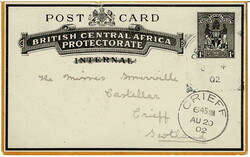 POST CARD
BRITISH CENTRAL AFRICA
PROTECTORATE
INTERNAL
The Misses Somerville
Castellar
Crieff
Scotland
02
CRIEFF
AU 20
02